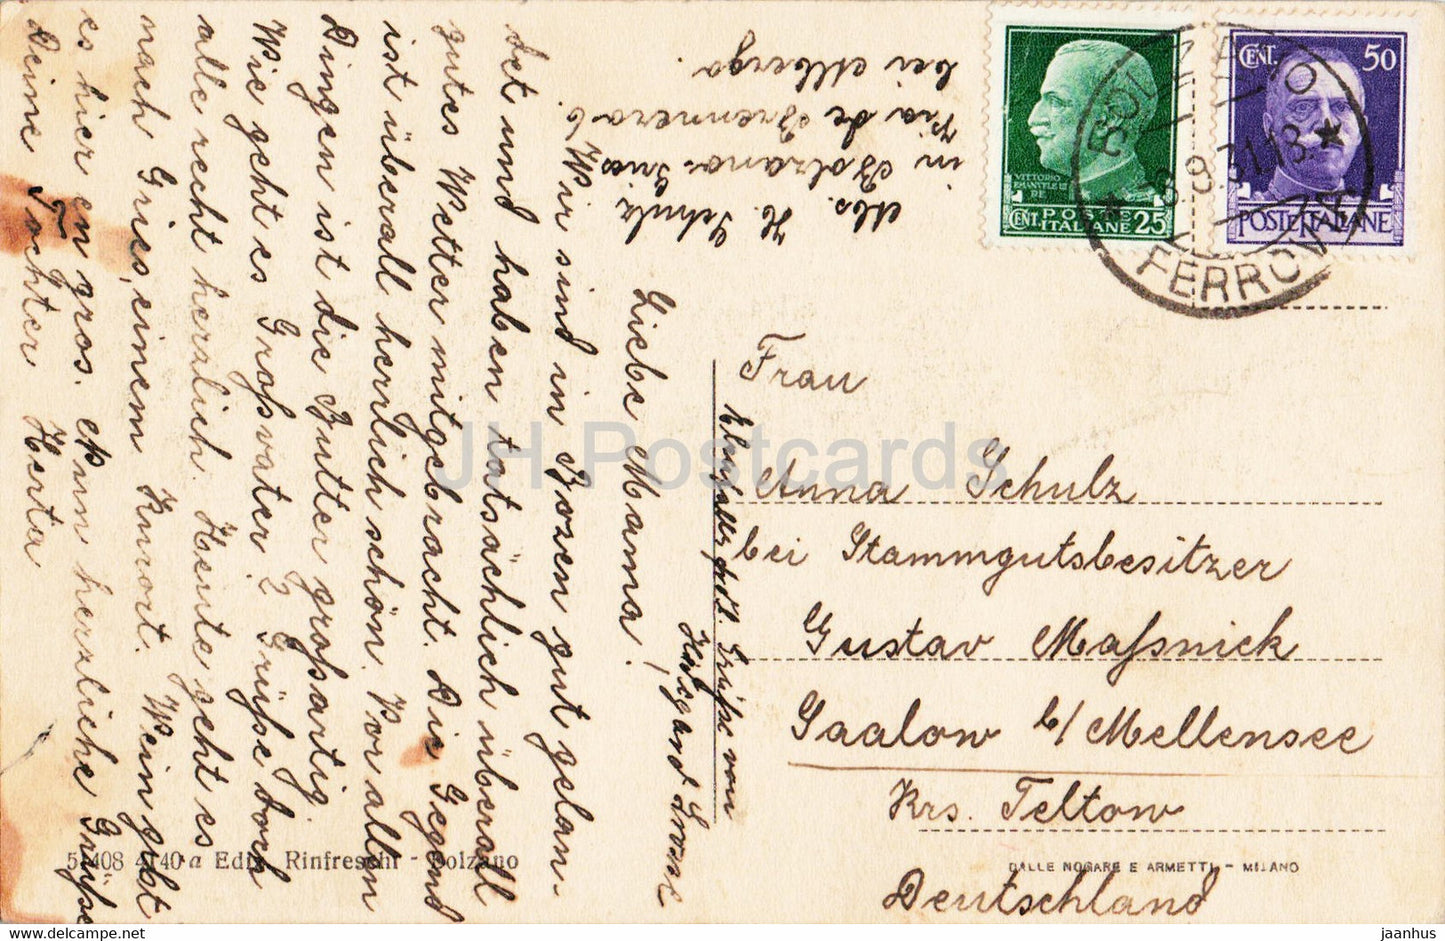 Abs. H. Schulz
in Bolzano-Gries
Via de Brennero 6
bei Alberga.
CENT. 50
POSTE ITALIANE
VITTORIO
EMANUELE III
RE
CENT. POSTE
ITALIANE 25
FERROVIA
Liebe Mama!
Wir sind in Bozen gut gelan-
det und haben tatsächlich überall
gutes Wetter mitgebracht. Die Gegend
ist überall herrlich schön. Vor allen
Dingen ist die Butter großartig.
Wie geht es Großvater? Grüße dort
alle recht herzlich. Heute geht es
nach Gries, einem Kurort. Wein gibt
es hier en gros. Nun herzliche Grüße
Deine Tochter Herta
Ebenfalls herzl. Grüße von
Frau
Anna Schulz
bei Stammgutsbesitzer
Gustav Maßnick
Saalow b/Mellensee
Krs. Teltow
Deutschland
51408 4140a Ediz. Rinfreschi - Bolzano
DALLE NOGARE E ARMETTI - MILANO
JH Postcards
jaanhus